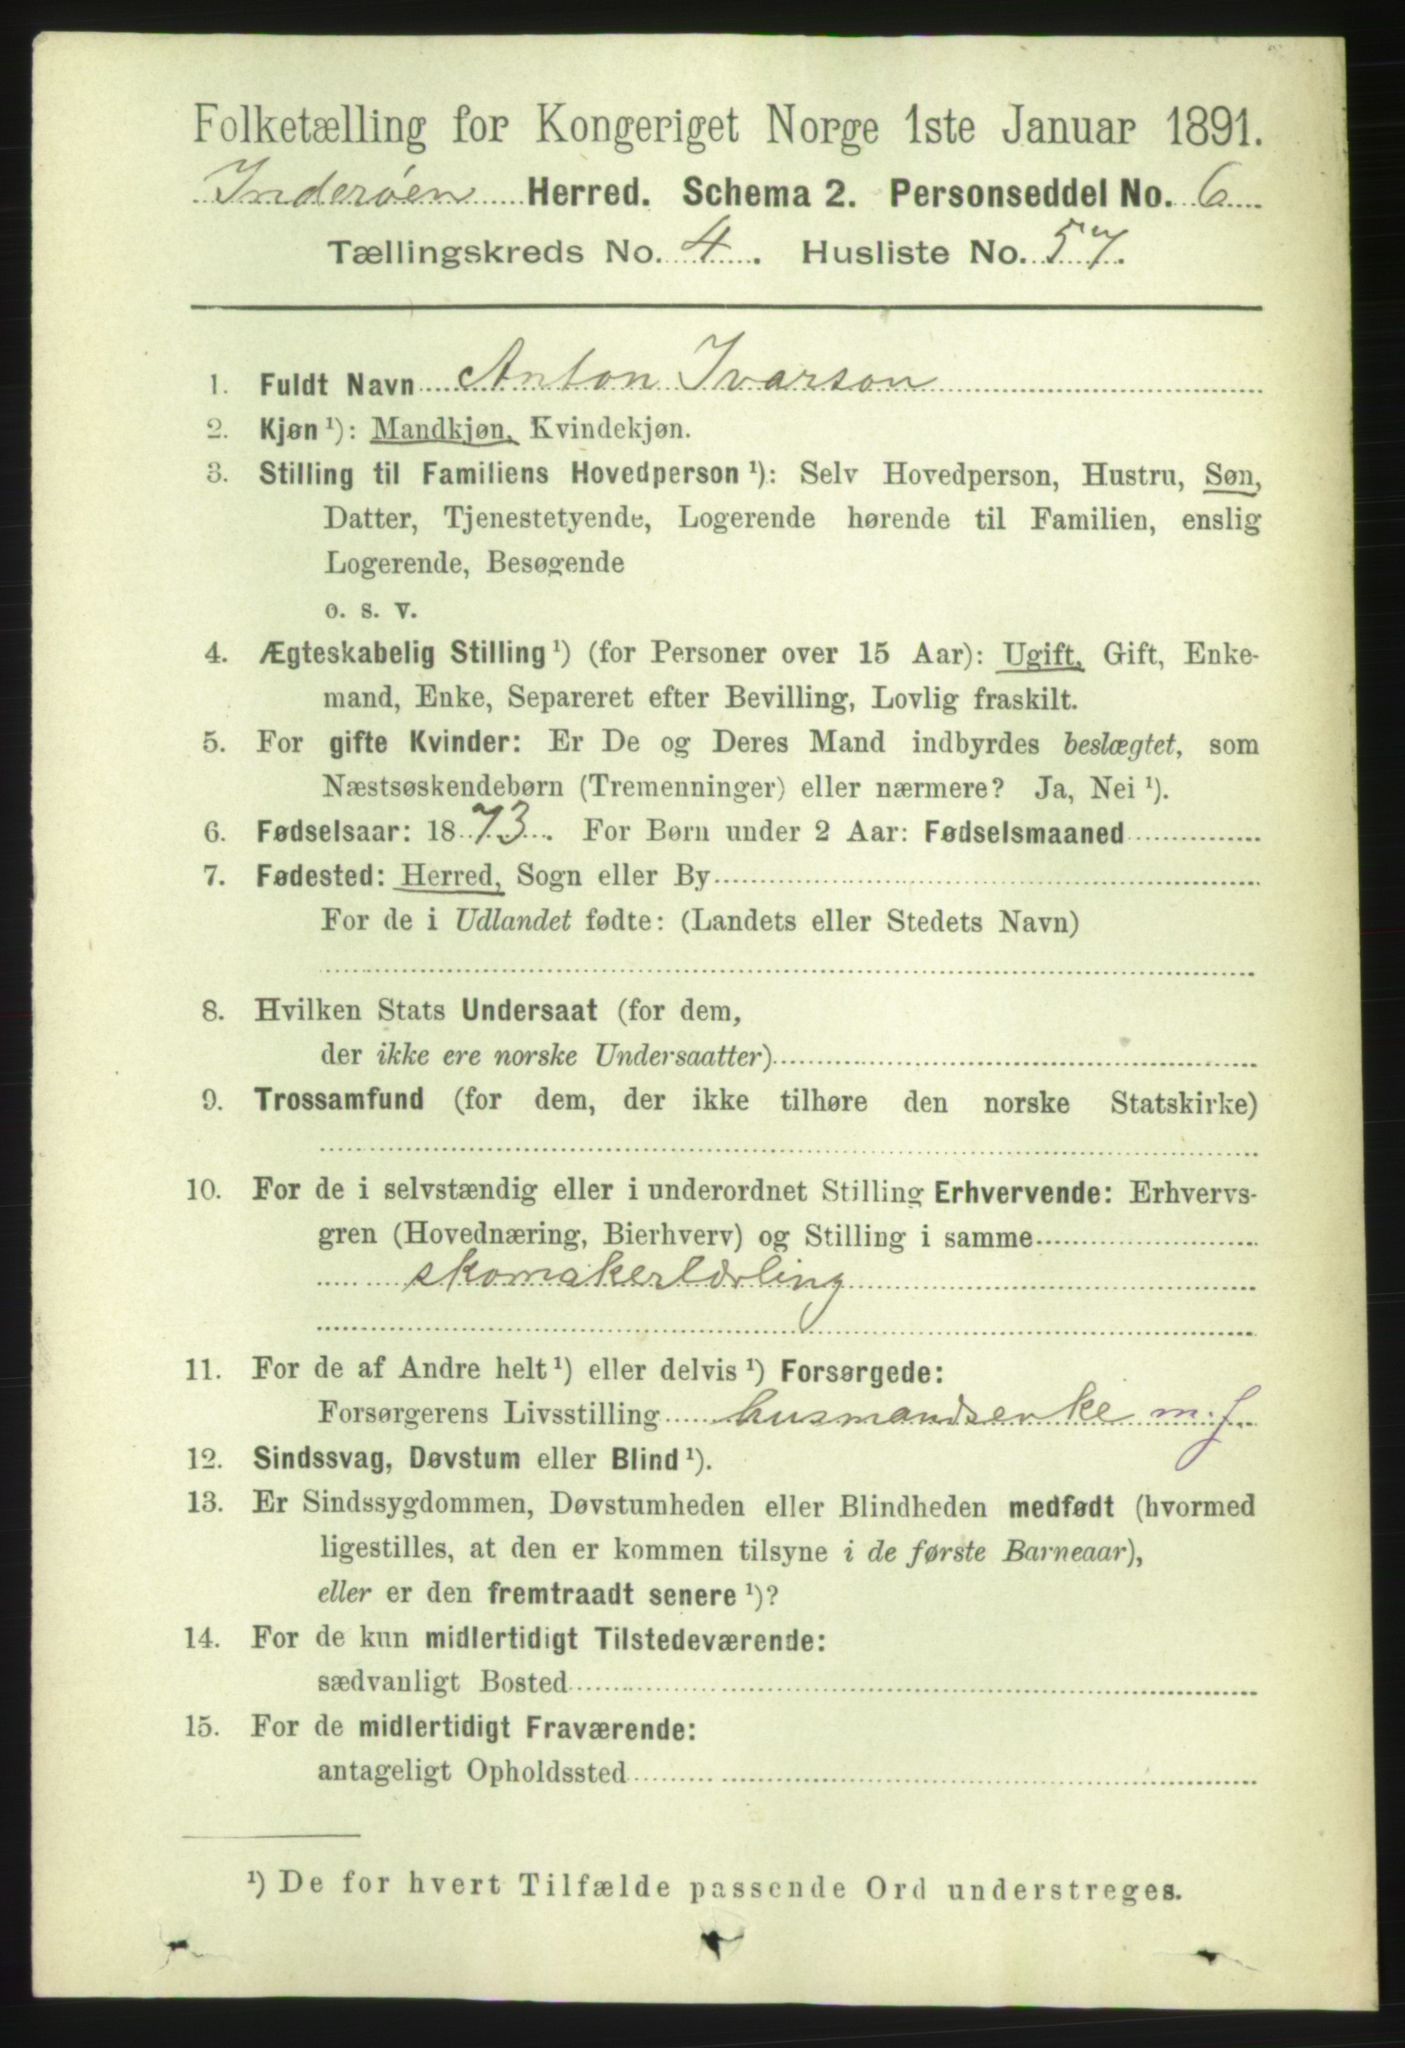 Folketælling for Kongeriget Norge 1ste Januar 1891.
Inderøen Herred. Schema 2. Personseddel No. 6
Tællingskreds No. 4. Husliste No. 57.
1. Fuldt Navn Anton Ivarson
2. Kjøn ¹): Mandkjøn, Kvindekjøn.
3. Stilling til Familiens Hovedperson ¹): Selv Hovedperson, Hustru, Søn,
Datter, Tjenestetyende, Logerende hørende til Familien, enslig
Logerende, Besøgende
o. s. v.
4. Ægteskabelig Stilling ¹) (for Personer over 15 Aar): Ugift, Gift, Enke-
mand, Enke, Separeret efter Bevilling, Lovlig fraskilt.
5. For gifte Kvinder: Er De og Deres Mand indbyrdes beslægtet, som
Næstsøskendebørn (Tremenninger) eller nærmere? Ja, Nei ¹).
6. Fødselsaar: 1873. For Børn under 2 Aar: Fødselsmaaned
7. Fødested: Herred, Sogn eller By
For de i Udlandet fødte: (Landets eller Stedets Navn)
8. Hvilken Stats Undersaat (for dem,
der ikke ere norske Undersaatter)
9. Trossamfund (for dem, der ikke tilhøre den norske Statskirke)
10. For de i selvstændig eller i underordnet Stilling Erhvervende: Erhvervs-
gren (Hovednæring, Bierhverv) og Stilling i samme
skomakerlærling
11. For de af Andre helt ¹) eller delvis ¹) Forsørgede:
Forsørgerens Livsstilling husmandsenke m.f.
12. Sindssvag, Døvstum eller Blind ¹).
13. Er Sindssygdommen, Døvstumheden eller Blindheden medfødt (hvormed
ligestilles, at den er kommen tilsyne i de første Barneaar),
eller er den fremtraadt senere ¹)?
14. For de kun midlertidigt Tilstedeværende:
sædvanligt Bosted
15. For de midlertidigt Fraværende:
antageligt Opholdssted
¹) De for hvert Tilfælde passende Ord understreges.